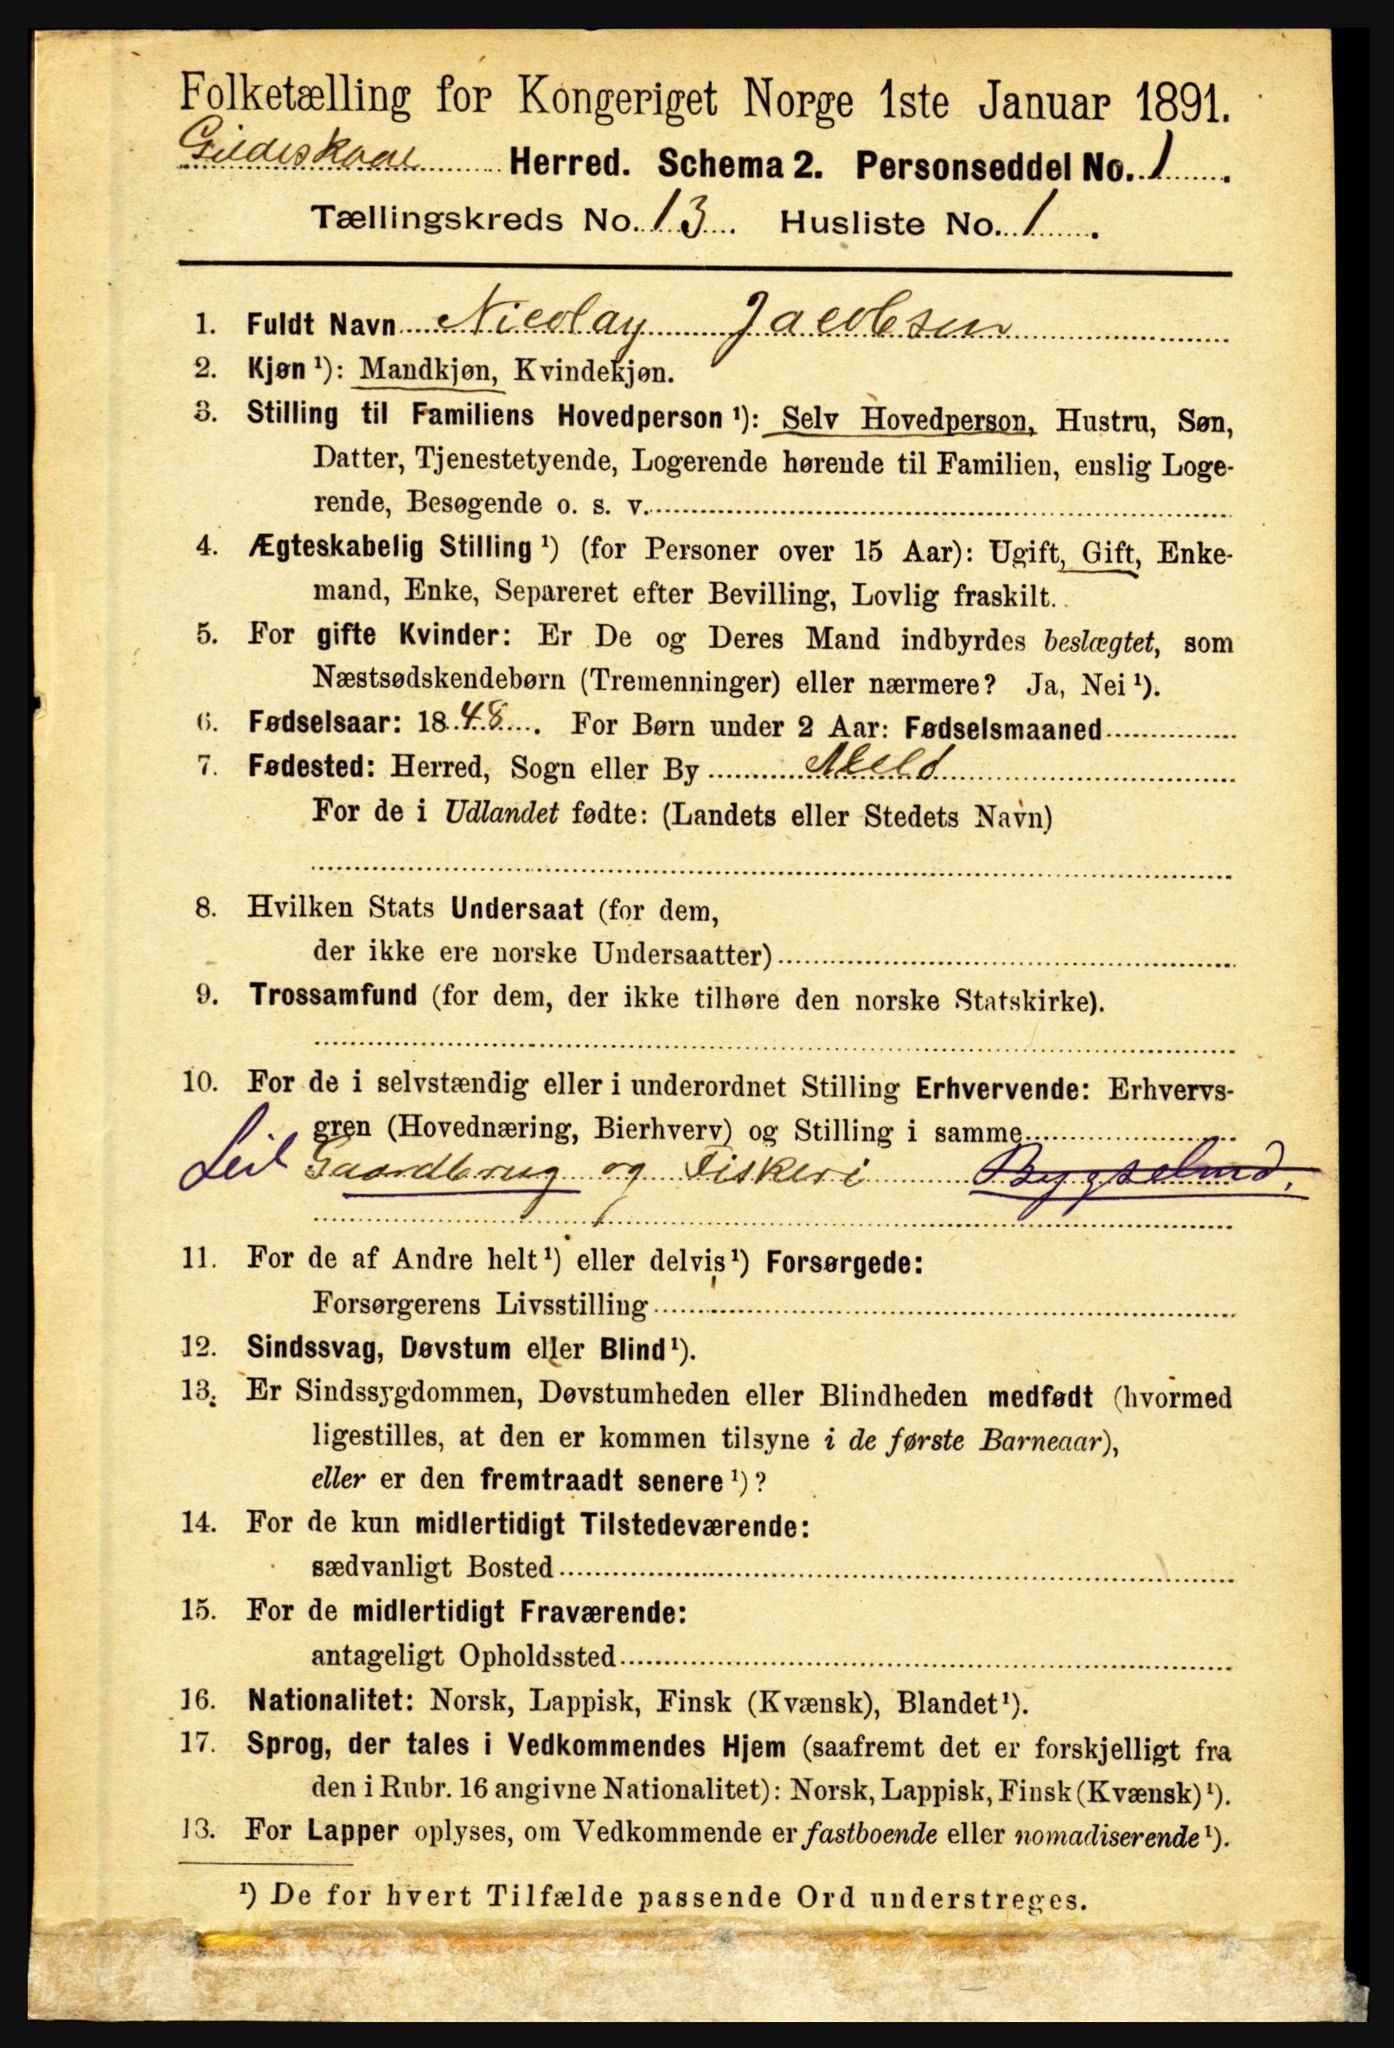 Folketælling for Kongeriget Norge 1ste Januar 1891.
Gildeskaal Herred. Schema 2. Personseddel No. 1.
Tællingskreds No. 13. Husliste No. 1.
1. Fuldt Navn Nicolay Jacobsen
2. Kjøn ¹): Mandkjøn, Kvindekjøn.
3. Stilling til Familiens Hovedperson ¹): Selv Hovedperson, Hustru, Søn,
Datter, Tjenestetyende, Logerende hørende til Familien, enslig Loge-
rende, Besøgende o. s. v.
4. Ægteskabelig Stilling ¹) (for Personer over 15 Aar): Ugift, Gift, Enke-
mand, Enke, Separeret efter Bevilling, Lovlig fraskilt.
5. For gifte Kvinder: Er De og Deres Mand indbyrdes beslægtet, som
Næstsødskendebørn (Tremenninger) eller nærmere? Ja, Nei ¹).
6. Fødselsaar: 1848. For Børn under 2 Aar: Fødselsmaaned
7. Fødested: Herred, Sogn eller By
For de i Udlandet fødte: (Landets eller Stedets Navn)
8. Hvilken Stats Undersaat (for dem,
der ikke ere norske Undersaatter)
9. Trossamfund (for dem, der ikke tilhøre den norske Statskirke).
10. For de i selvstændig eller i underordnet Stilling Erhvervende: Erhvervs-
gren (Hovednæring, Bierhverv) og Stilling i samme
Leil Gaardbrug og Fiskeri Bygselmd.
11. For de af Andre helt ¹) eller delvis ¹) Forsørgede:
Forsørgerens Livsstilling
12. Sindssvag, Døvstum eller Blind ¹).
13. Er Sindssygdommen, Døvstumheden eller Blindheden medfødt (hvormed
ligestilles, at den er kommen tilsyne i de første Barneaar),
eller er den fremtraadt senere ¹)?
14. For de kun midlertidigt Tilstedeværende:
sædvanligt Bosted
15. For de midlertidigt Fraværende:
antageligt Opholdssted
16. Nationalitet: Norsk, Lappisk, Finsk (Kvænsk), Blandet ¹).
17. Sprog, der tales i Vedkommendes Hjem (saafremt det er forskjelligt fra
den i Rubr. 16 angivne Nationalitet): Norsk, Lappisk, Finsk (Kvænsk) ¹).
13. For Lapper oplyses, om Vedkommende er fastboende eller nomadiserende ¹).
¹) De for hvert Tilfælde passende Ord understreges.